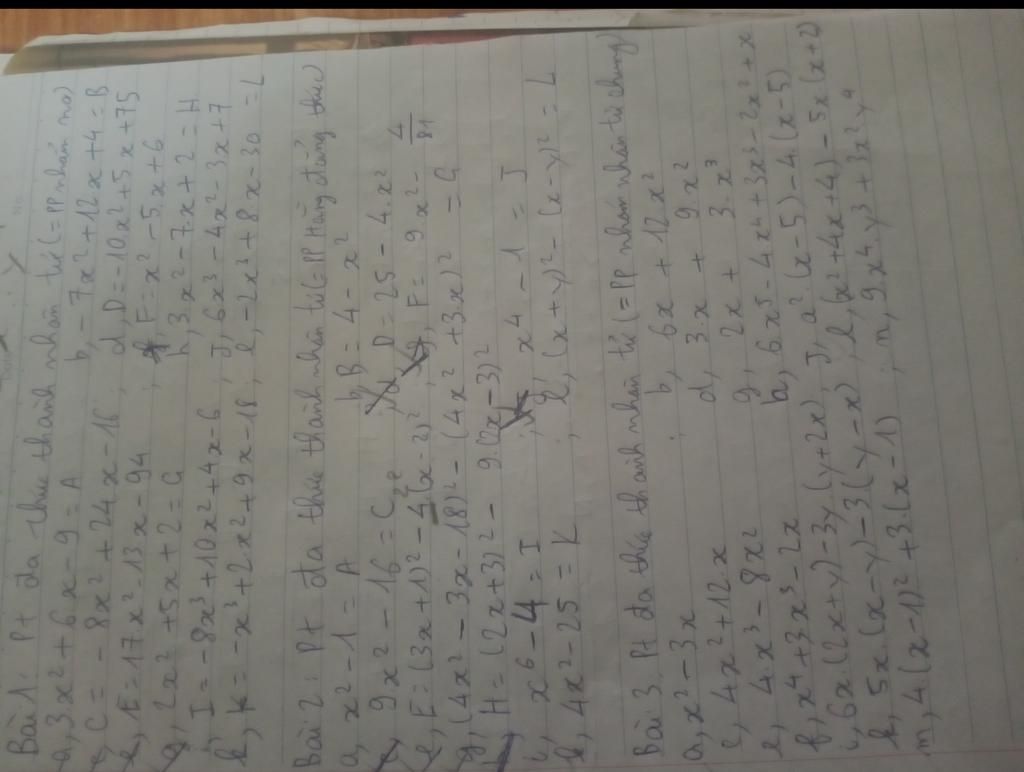 Bài 1: Pt đa thức thành nhân tử (= PP nhẩm no)
a, 3x² + 6x - 9 = A b, - 7x² + 12x + 4 = B
c, C = - 8x² + 24x - 16 ; d, D = - 10x² + 5x + 75
e, E = 17x² - 13x - 94 ; f, F = x² - 5x + 6
g, 2x² + 5x + 2 = G h, 3x² - 7x + 2 = H
i, I = - 8x³ + 10x² + 4x - 6 J, 6x³ - 4x² - 3x + 7
k, K = - x³ + 2x² + 9x - 18 ; l, - 2x³ + 8x - 30 = L
Bài 2: Pt đa thức thành nhân tử (= PP Hằng đẳng thức)
a, x² - 1 = A b, B = 4 - x²
c, 9x² - 16 = C ; d, D = 25 - 4.x²
e, E = (3x + 1)² - 4(x - 2)² ; F = 9x² - 4/81
g, (4x² - 3x - 18)² - (4x² + 3.x)² = G
H = (2x + 3)² - 9.(2x - 3)²
i, x⁶ - 4 = I ; x⁴ - 1 = J
k, 4x² - 25 = K ; l, (x + y)² - (x - y)² = L
Bài 3. Pt đa thức thành nhân tử (= PP nhóm nhân tử chung)
a, x² - 3x ; b, 6x + 12x²
c, 4x² + 12x d, 3.x + 9.x²
e, 4.x³ - 8x² g, 2x + 3.x³
f, x⁴ + 3x³ - 2x h, 6x⁵ - 4x⁴ + 3x³ - 2x² + x
i, 6x.(2x + y) - 3y(y + 2x) J, a².(x - 5) - 4.(x - 5)
k, 5x.(x - y) - 3(y - x) ; l, (x² + 4x + 4) - 5x(x + 2)
m, 4(x - 1)² + 3.(x - 1) ; n, 9x⁴.y³ + 3x²y⁴